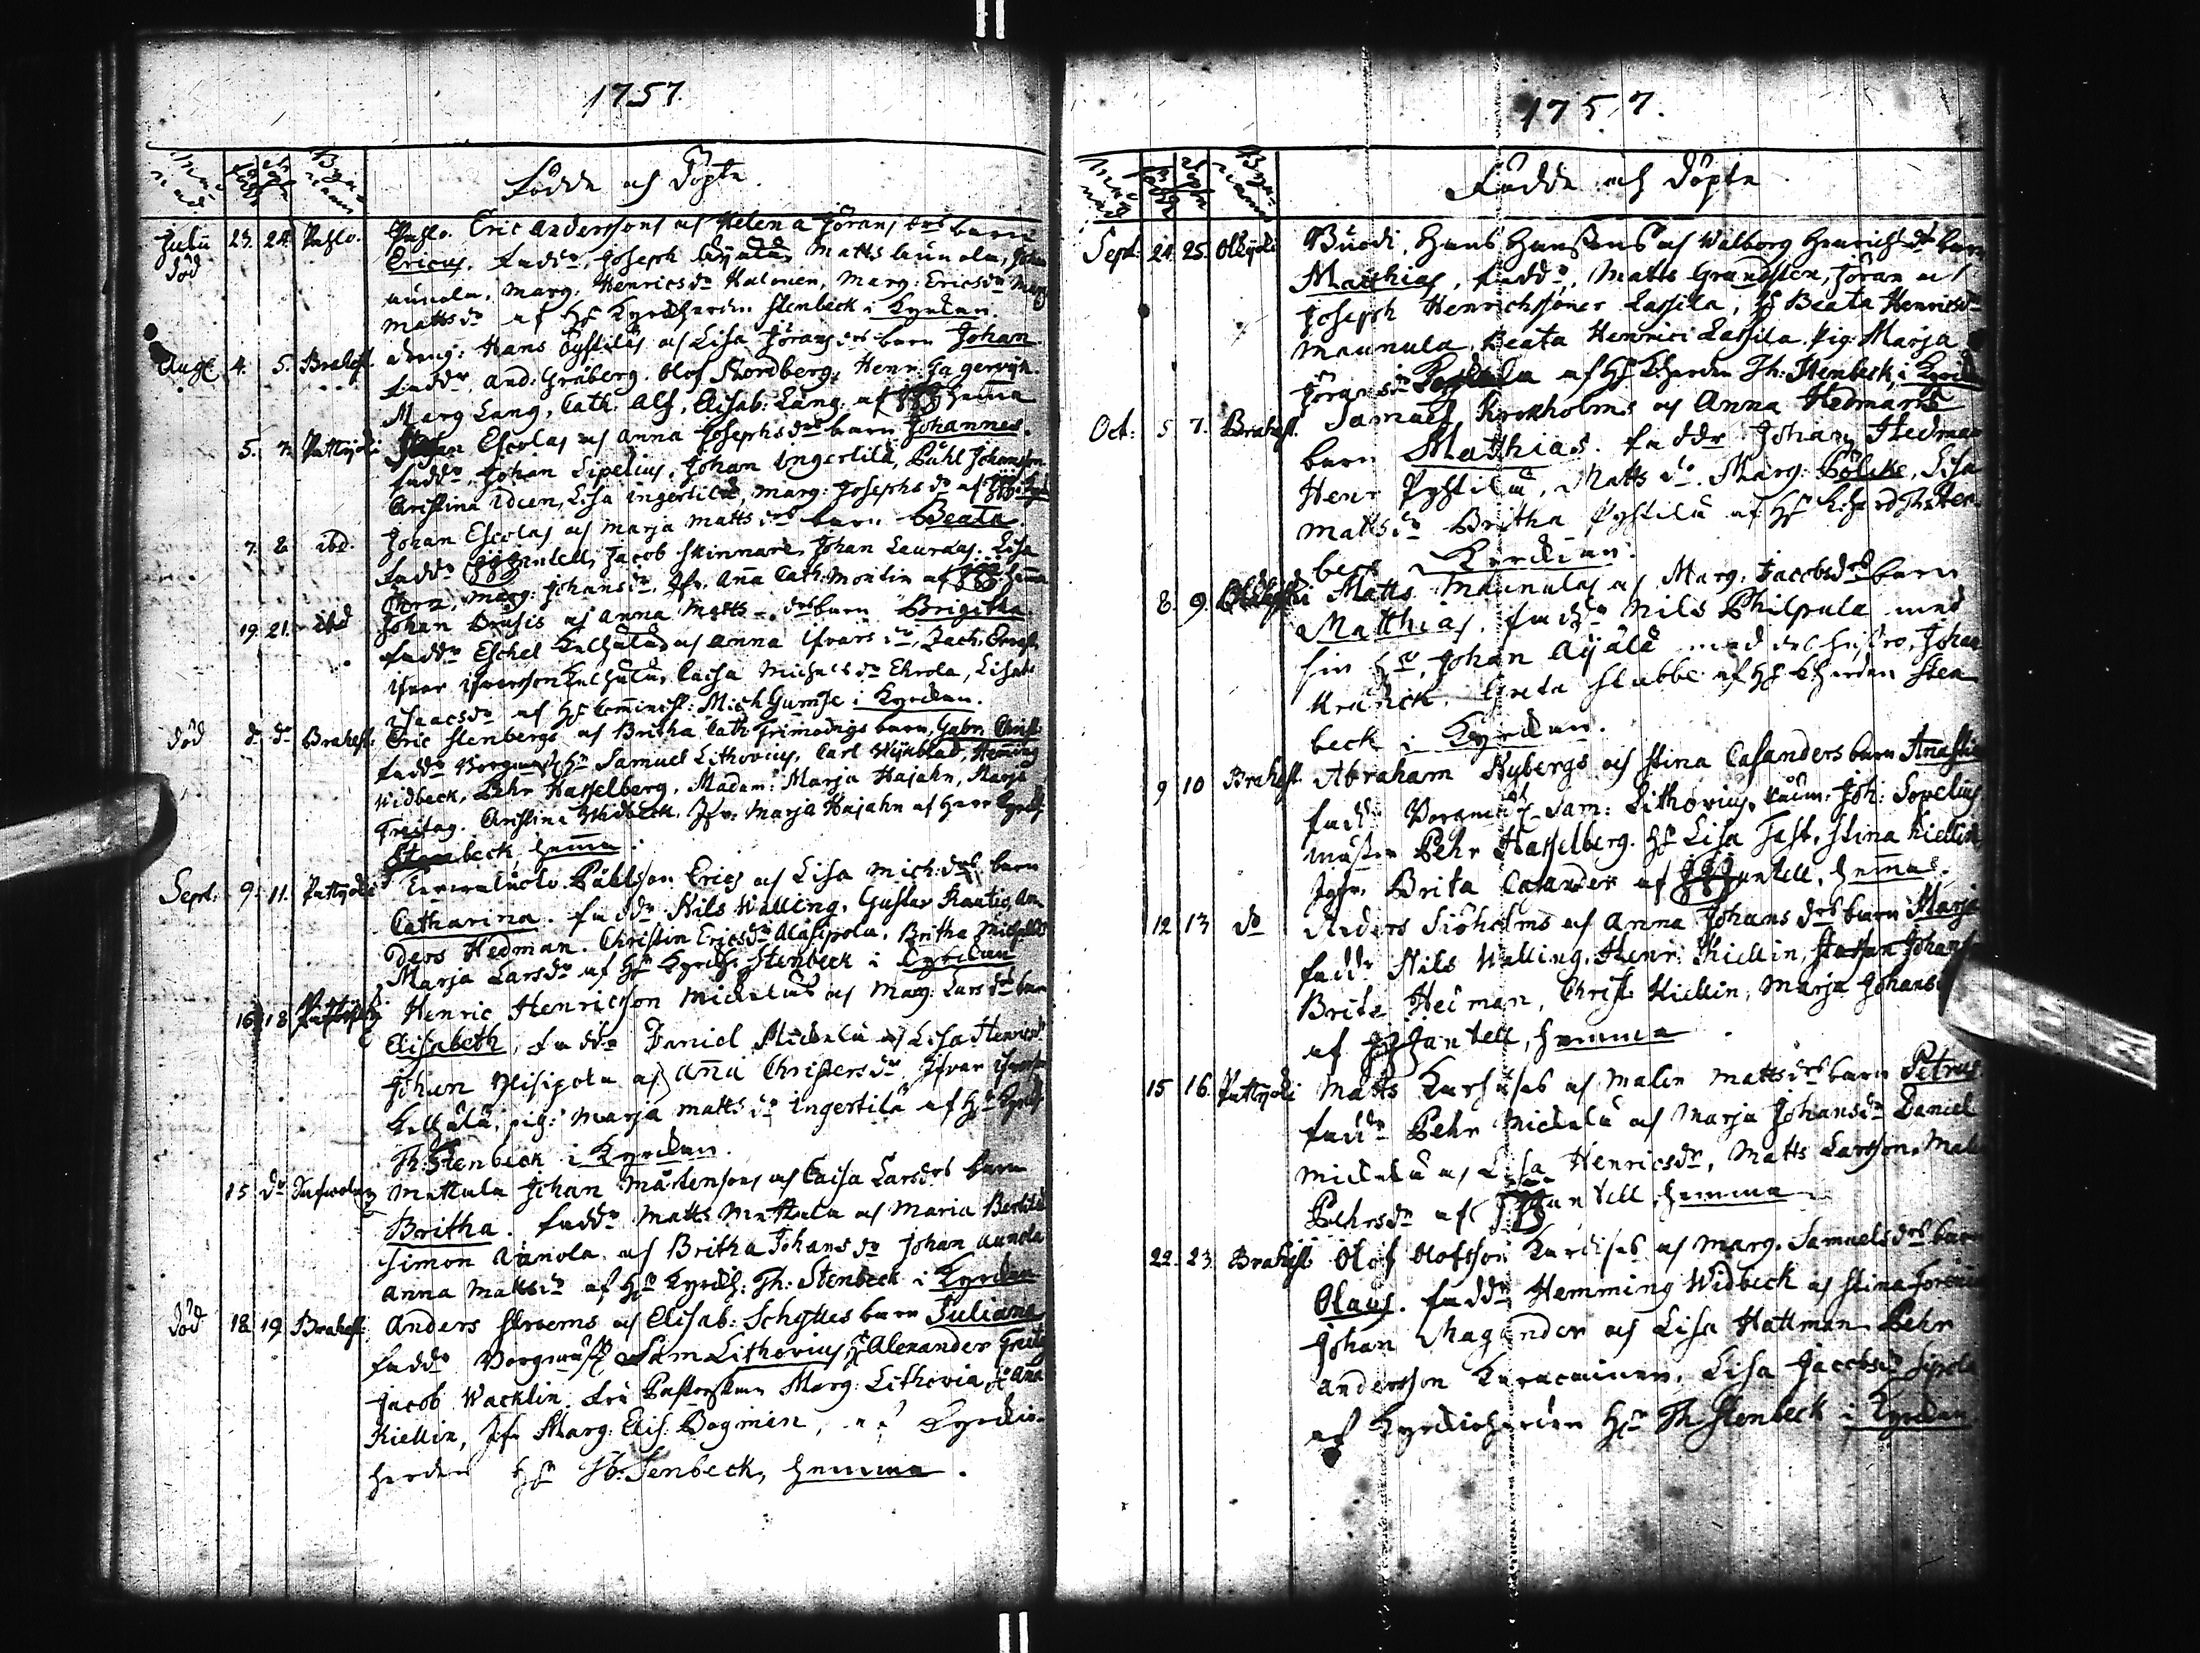 1757.
Födde och Döpte.
Julii 23. 24. Pahlo. Pahlo. Eric Anderssons och Helena Jörans drs barn
död Ericus. faddr. Joseph Matts Aunola, Joh
Aunola. Marg. Henricsdr Halonen, Marg: Ericsdr Marg
Mattsdr af Hr Kyrckherden Stenbeck i Kyrckan.
Aug. 4. 5. Brahest. dreng: Hans och Lisa Jörans drs barn Johan
faddr. And: Gråberg. Olof Nordberg, Henr:
Marg Lang, Cath. Alf, Elisab: Lang. af hema
5. 7. Pattijoki Johan Escolas och Anna Josephs drs barn Johannes.
faddr. Johan Sipelius, Johan Ingertilä, Påhl Johansson
Christina Ideen, Lisa Ingertilä, Marg: Josephs dr af
7. 8. ibd. Johan Escolas och Marja Matts drs barn Beata.
faddr Jacob Skinnare Johan Lauralas. Lisa
Marg: Johansdr. Jfr. Aña Cath: Montin af hema
19. 21. ibd Johan Brusis och Anna Matts drs barn Brigitha.
faddr Eschel och Anna Ifvars dr, Zach.
Ifvar Ifvarsson Caisa Michelsdr Ehrola, Lisa
Isaacsdr af Hr Comminist: Mich Gumse i Kyrckan.
död dr dr Brahest: Eric Stenbergs och Britha Cath: Frimodigs barn, Gabr. Christ.
faddr Borgmäst Hr Samuel Lithovius, Carl Wijkblad, Heming
Widbeck, Pehr Hasselberg. Madam: Marja Hajahn, Marja
Freitag. Christina Widbeck. Jfr: Marja Hajahn af Herr Kyrckh
Stenbeck, hema.
Sept. 9. 11. Pattijoki Påhlson Erics och Lisa Mich: drs barn
Catharina. faddr Nils Walling. Gustav An
ders Hedman. Christin Ericsdr Alasipola. Britha Michelsdr
Marja Larsdr af Hr Kyrckh. Stenbeck i Kyrckan
16 18 Pattijoki Henric Henricsson Mickelus och Marg: Lars drs barn
Elisabeth, faddr Daniel Mickela och Lisa Henricsdr
Johan Ylisipola och Aña Christersdr, Ifvar Ifvarsson
pig: Marja Mattsdr Ingertilä af Hr Kyrckh
Th: Stenbeck i Kyrckan.
15 dr Mattula Johan Mårtensons och Caisa Larsdrs barn
Britha. faddr Matts Mattula och Maria Bertila
Simon Aunola och Britha Johansdr Johan Aunola
Anna Mattsdr af Hr Kyrckh: Th: Stenbeck i Kyrckan
död 18 19 Brahest: Anders Ströms och Elisab: Schyttes barn Juliana
faddr Borgmäst Sam Lithovius, Hr Alexander
Jacob Wacklin. Fru Pastorskan Marg: Lithovia, Aña
Kiellin, Jfr Marg: Elis: Bogman, af Kyrckio-
herden Hr Th. Stenbeck, hemma.
1757.
Födde och Döpte
Sept: 24. 25. Olkijoki Buodi, Hans Hanssons och Walborg Henrichsdrs barn
Matthias, faddr. Matts Granssten, Jöran och
Joseph Henrichssöner Lassila, Beata Henricsdr
Maunula, Beata Henrici Lassila. Pig: Marja
Jöransdr af Hr K:herden Th: Stenbeck, i Kyrckan
Oct: 5 7. Brahest. Samuel Krokholms och Anna Hedmans
barn Matthias. faddr Johan Hedman
Henr Pyhtilä, Matts dr. Marg: Lisa
Mattsdr Britha Pyhtilä af Hr K:herd Th: Sten
beck Kyrckian.
8. 9. Matts Maunulas och Marg: Jacobsdrs barn
Matthias. faddr Nils Philpula med
sin hu, Johan Äijälä med dess hustro, Johan
Kranck. Greta Stubbe af Hr K:herden Sten
beck i Kyrckan.
9 10 Brahest Abraham Nybergs och Stina Casanders barn Anna Stin
faddr Borgmäst Sam: Lithovius, Joh: Sovelius
Pehr Hasselberg. Lisa Fast, Stina Kiellin
Jgfr. Brita Casander af Zantell, hema.
12 13 do Anders Siöholms och Anna Johans drs barn Marja
faddr Nils Walling, Henr: Kiellin, Staffan Johans
Brita Heiman, Christ: Kiellin, Marja Johansdr
af Zantell, hemma
15 16. Pattijoki Matts Karhusas och Malin Mattsdrs barn Petrus
faddr Pehr Mickela och Marja Johansdr Daniel
Mickela och Lisa Henricsdr, Matts Larsson, Mal
Pehrsdr af Zantell, hemma
22. 23. Brahest. Olof Olofsson och Marg: Samuelsdrs barn
Olaus. faddr Hemming Widbeck och Stina
Johan Maxander och Lisa Hattman Pehr
Andersson Lisa Jacobsdr Sipola
af Kyrckioherden Hr Th Stenbeck i Kyrckan